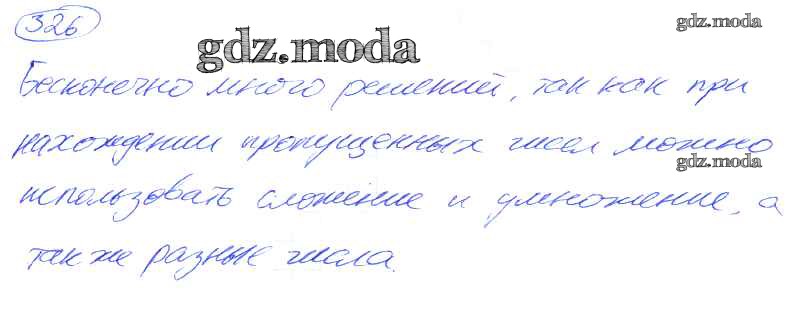 326
gdz.moda
gdz.moda
Бесконечно много решений, так как при
нахождении пропущенных чисел можно
gdz.moda
использовать сложение и умножение, а
также разные числа.